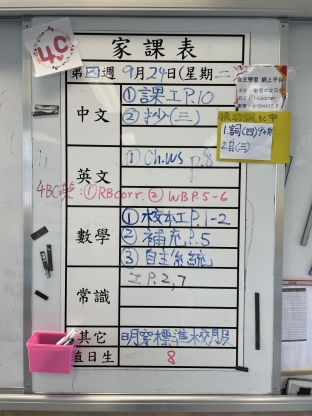 4C
家課表
第四週 9月24日(星期二
中文
①課工P.10
②抄(三)
自主學習 網上平台
1.詞(四)
2.首(三)
英文
① Ch.WS p.8
4BC英:①RBcorr. ② WB P.5-6
數學
① 校本工P.1-2
② 補充P.5
③ 自主系統
常識
工P.2,7
其它
明窄標準校服
值日生
8